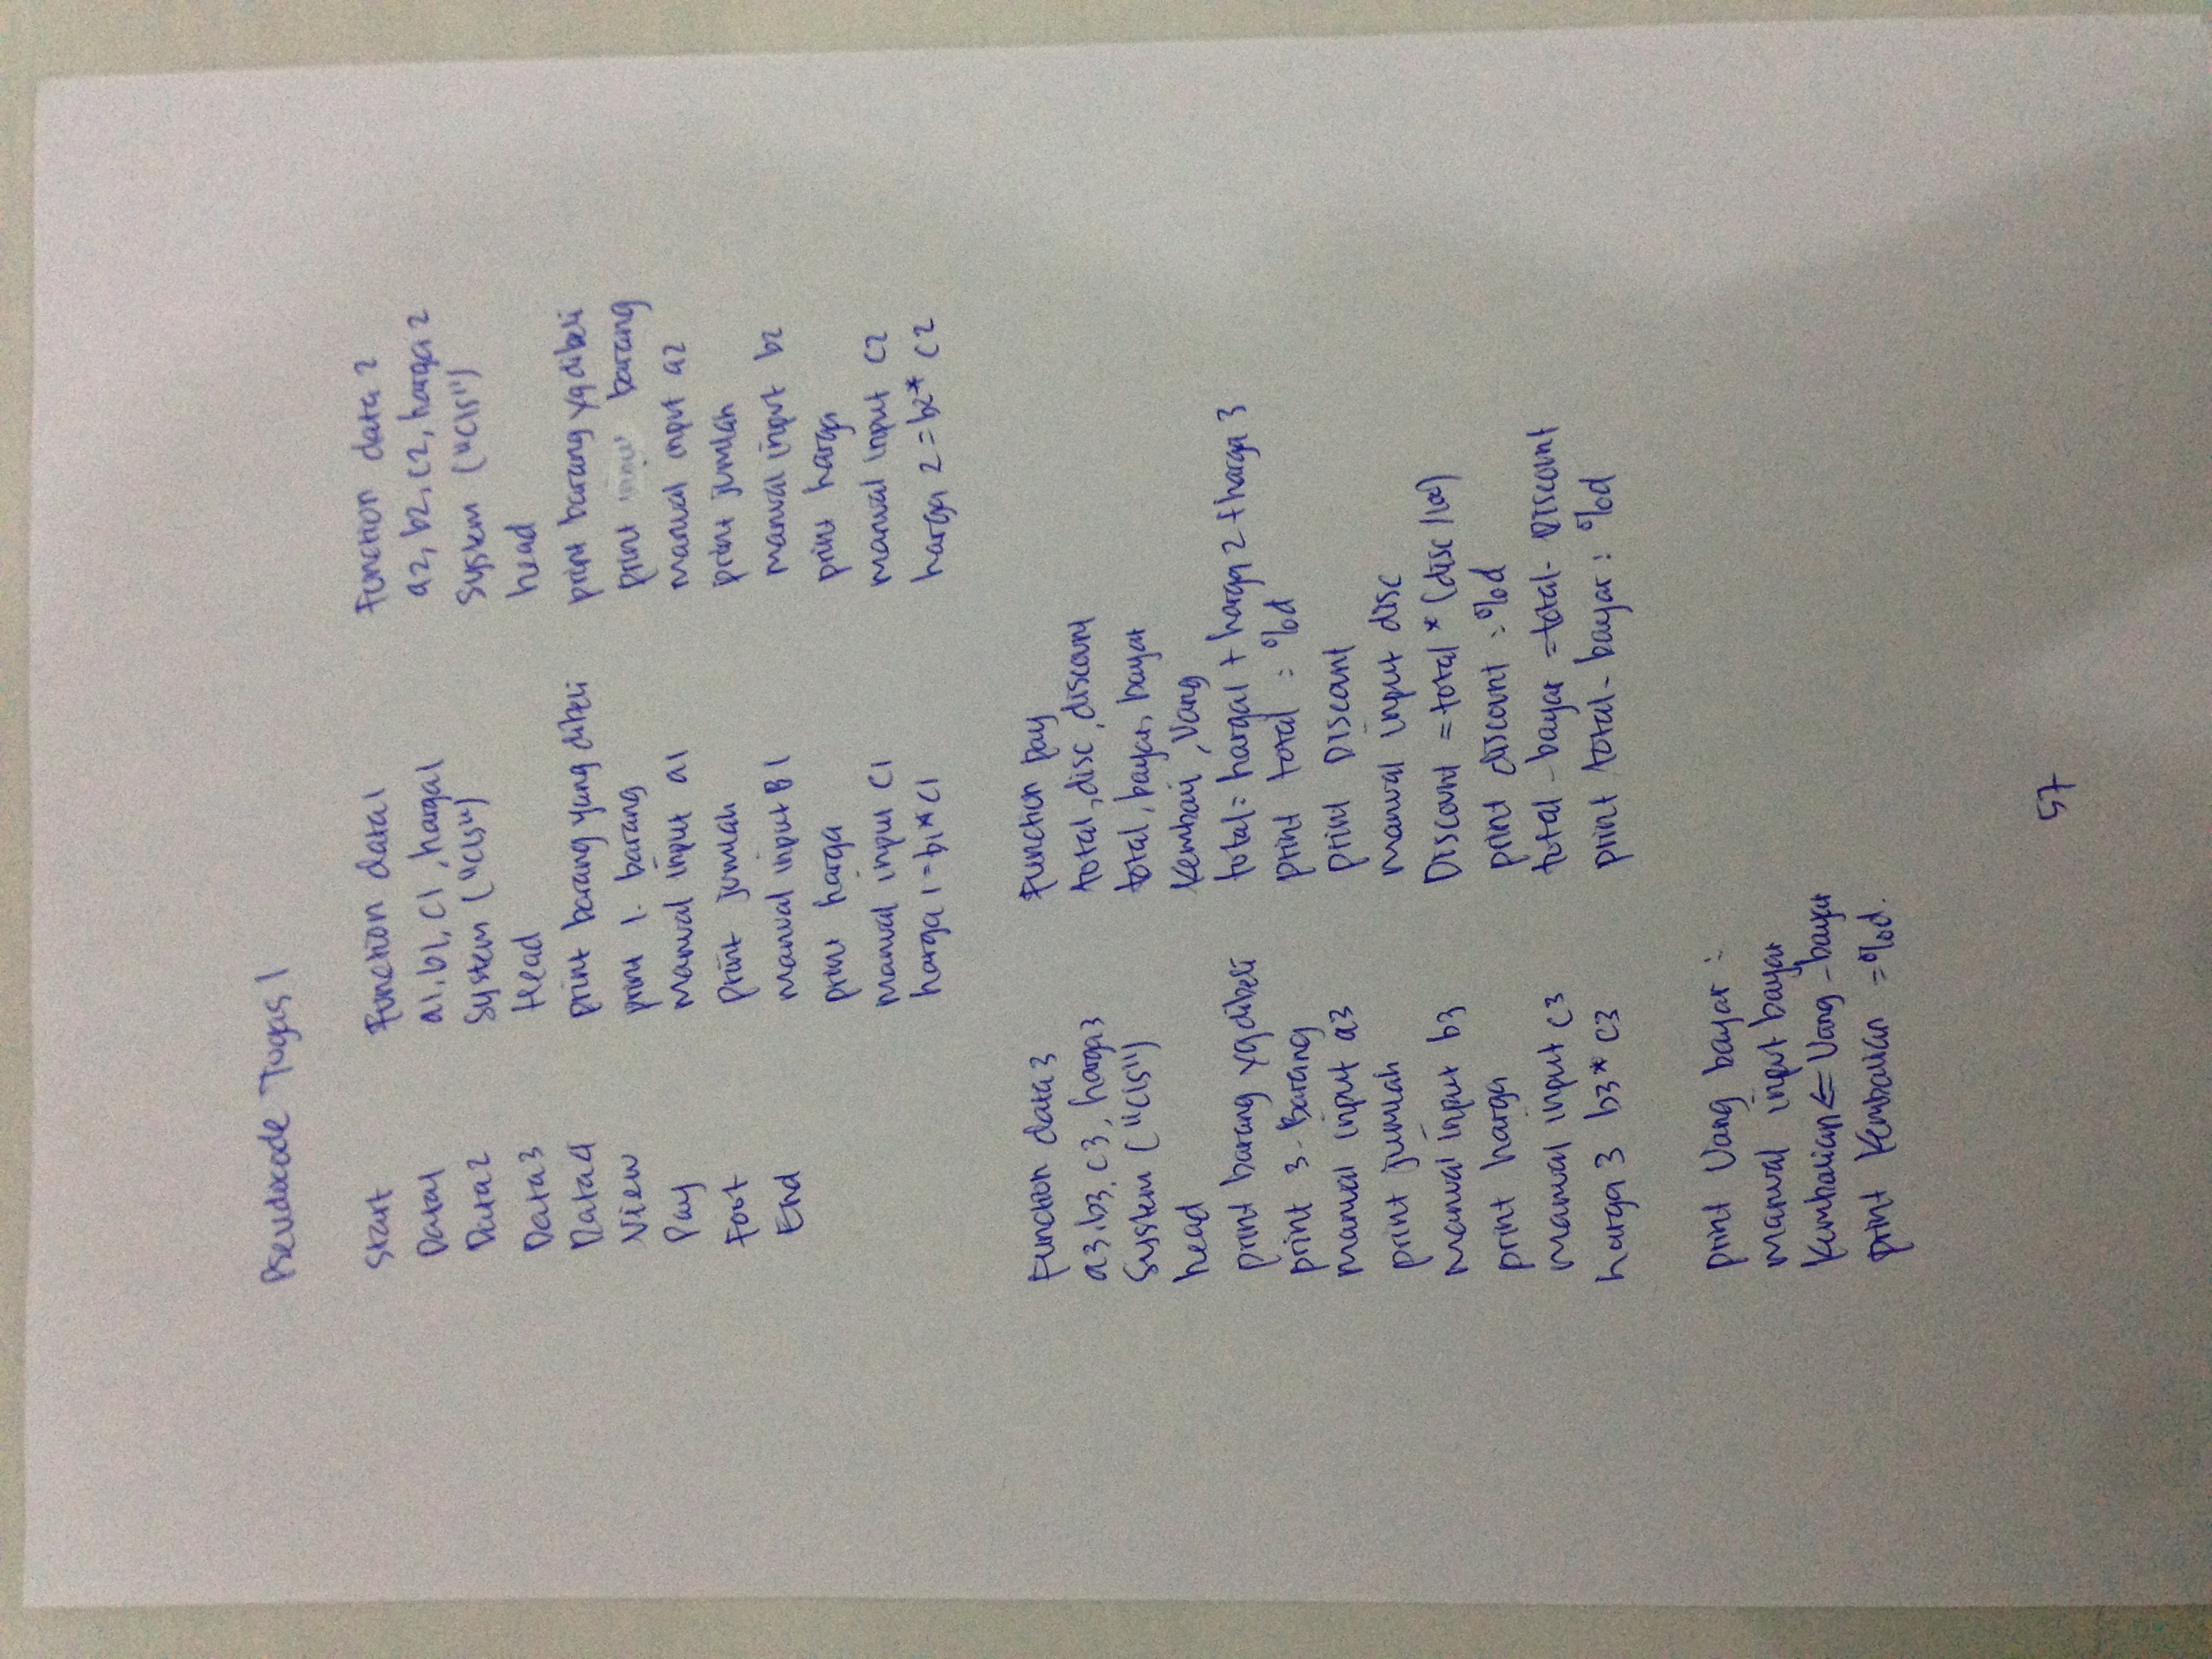 Pseudocode Tugas 1
Start
Data1
Data2
Data3
Data4
View
Pay
Foot
End
Function data1
a1, b1, c1, harga1
System ("cls")
Head
print barang yang dibeli
print 1. barang
Manual input a1
Print jumlah
Manual input B1
print harga
Manual input C1
harga 1 = b1*c1
Function data 2
a2, b2, c2, harga 2
System ("cls")
head
print barang yg dibeli
print barang
manual input a2
print jumlah
manual input b2
print harga
manual input c2
harga 2 = b2* c2
Function data 3
a3, b3, c3, harga3
System ("cls")
head
print barang yg dibeli
print 3 - Barang
Manual input a3
print jumlah
Manual input b3
print harga
Manual input c3
harga 3 b3* c3
Function pay
total, disc, discount
total, bayar, bayar
Kembali, Uang
total = harga1 + harga 2 + harga 3
print total : %d
print Discount
Manual input disc
Discount = total * (disc/100)
print discount : %d
total - bayar = total - Discount
print total - bayar : %d
print Uang bayar :
Manual input bayar
Kembalian <= Uang - bayar
print Kembalian = %d.
57